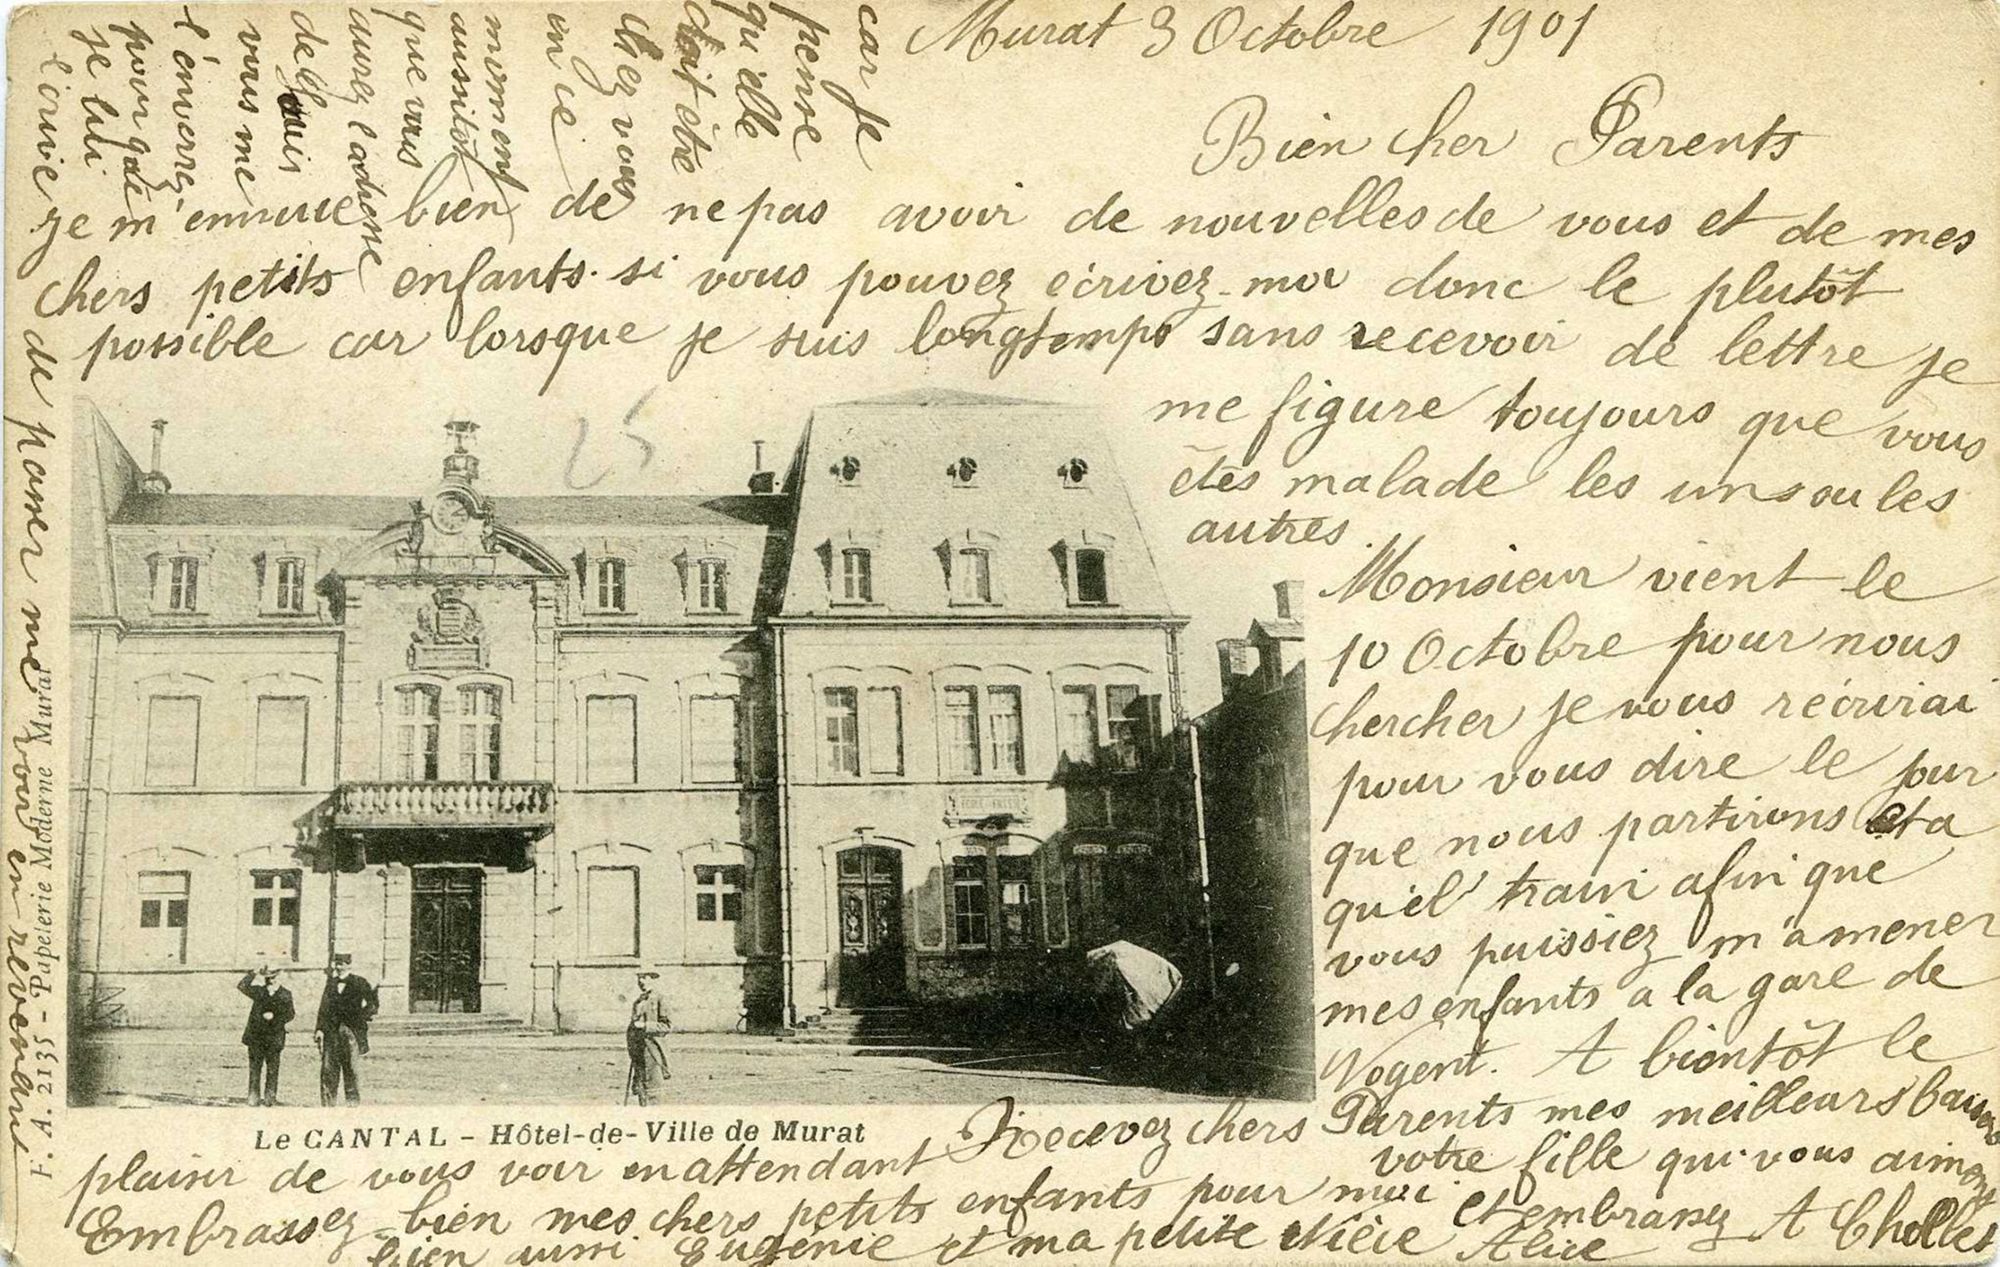 Murat 3 Octobre 1901
Bien cher Parents
je m'ennuie bien de ne pas avoir de nouvelles de vous et de mes
chers petits enfants. si vous pouvez ecrivez-moi donc le plutôt
possible car lorsque je suis longtemps sans recevoir de lettre je
me figure toujours que vous
êtes malade les uns ou les
autres.
Monsieur vient le
10 Octobre pour nous
chercher je vous récrirai
pour vous dire le jour
que nous partirons et a
qu'el train afin que
vous puissiez m'amener
mes enfants a la gare de
Nogent. A bientôt le
plaisir de vous voir en attendant Recevez chers Parents mes meilleurs baisers
votre fille qui vous aiment
Embrassez-bien mes chers petits enfants pour moi et embrassez A Chollet
bien aussi Eugénie et ma petite Nièce Alice
car je
pense
qu'elle
doit être
chez vous
en ce
moment
aussitôt
que vous
aurez l'adresse
de
vous me
l'enverrez
pour que
je lui
écrive
de passer me voir en revenant
25
Le CANTAL - Hôtel-de-Ville de Murat
F. A. 2135 - Papeterie Moderne Murat